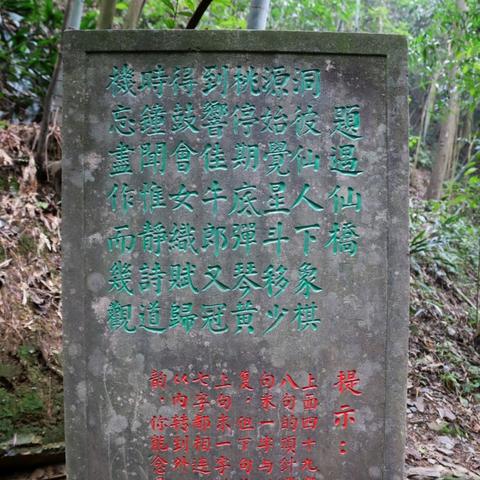 題遇仙橋
洞彼仙人下象棋
源始覺星斗移少
桃停期底彈琴黃
到響佳牛郎又冠
得鼓會女織賦歸
時鐘聞惟靜詩道
機忘盡作而幾觀
提示：
上面四十九
八句的頂針
句末一字与
复，但下句
上句末一字
七字都相连
以內转到外
韵，你能念